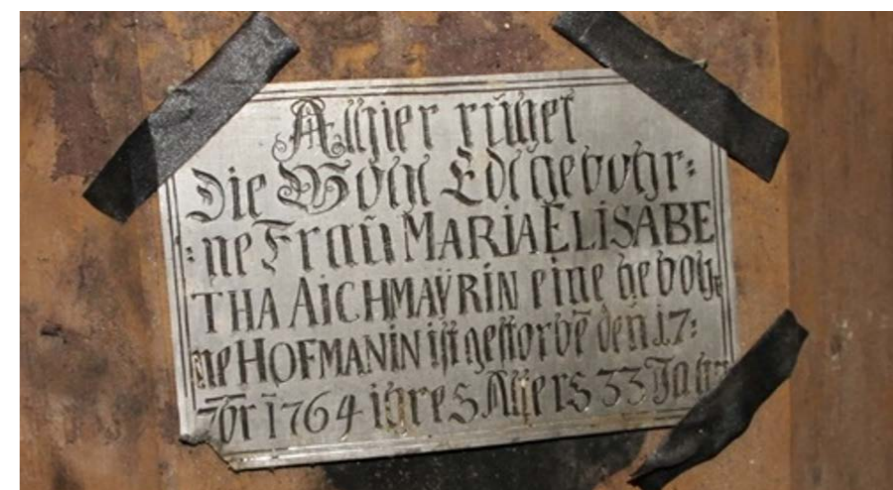 Alhier rűhet
Die Woḧl Edl gebohr=
=ne Fraű MARIA ELISABE
THA AICHMAŸRIN eine geboh¡
ne HOFMANIN ist gestorbē den 17=
7br 1764 ihres Alters 33 Jahr